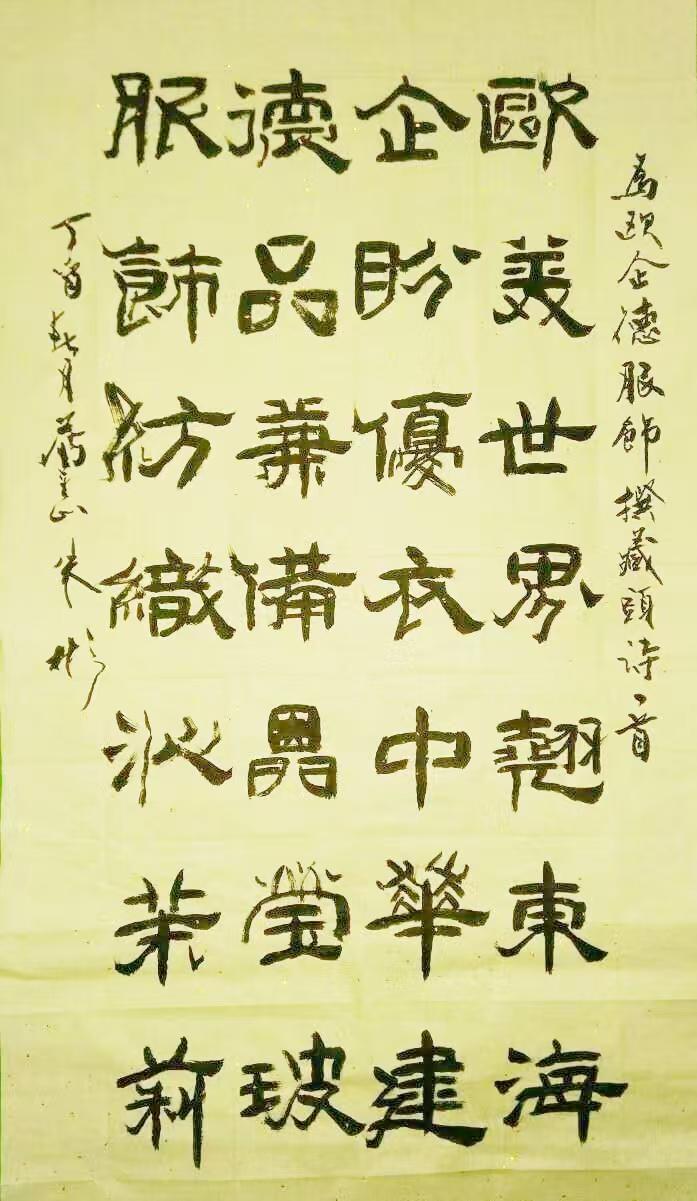 為欧企德服飾撰藏頭诗一首
歐美世界翹東海
企盼優衣中華建
德品兼備晶瑩玻
服飾紡織沁茉莉
丁酉秋月山朱彬